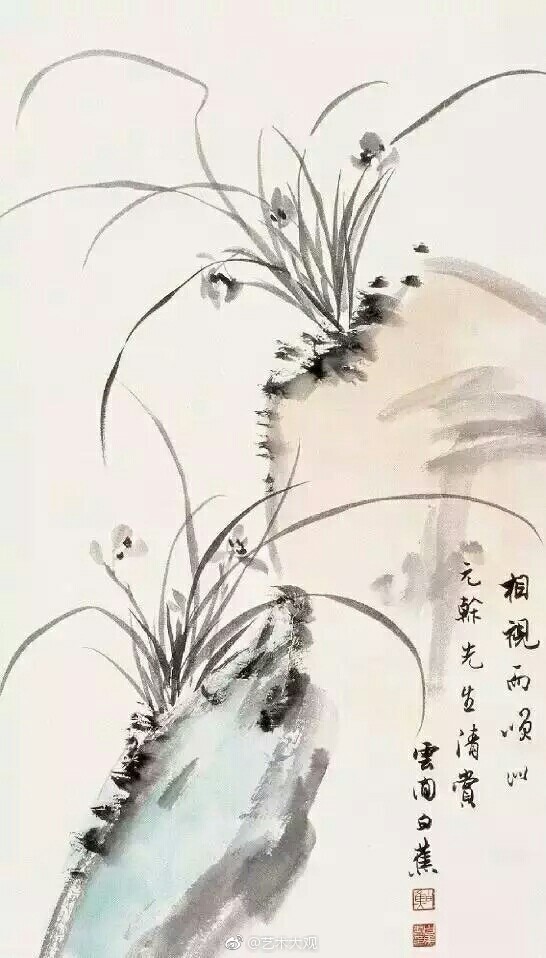 相視而咲
元榦先生清賞
雲間白蕉
艺术大观